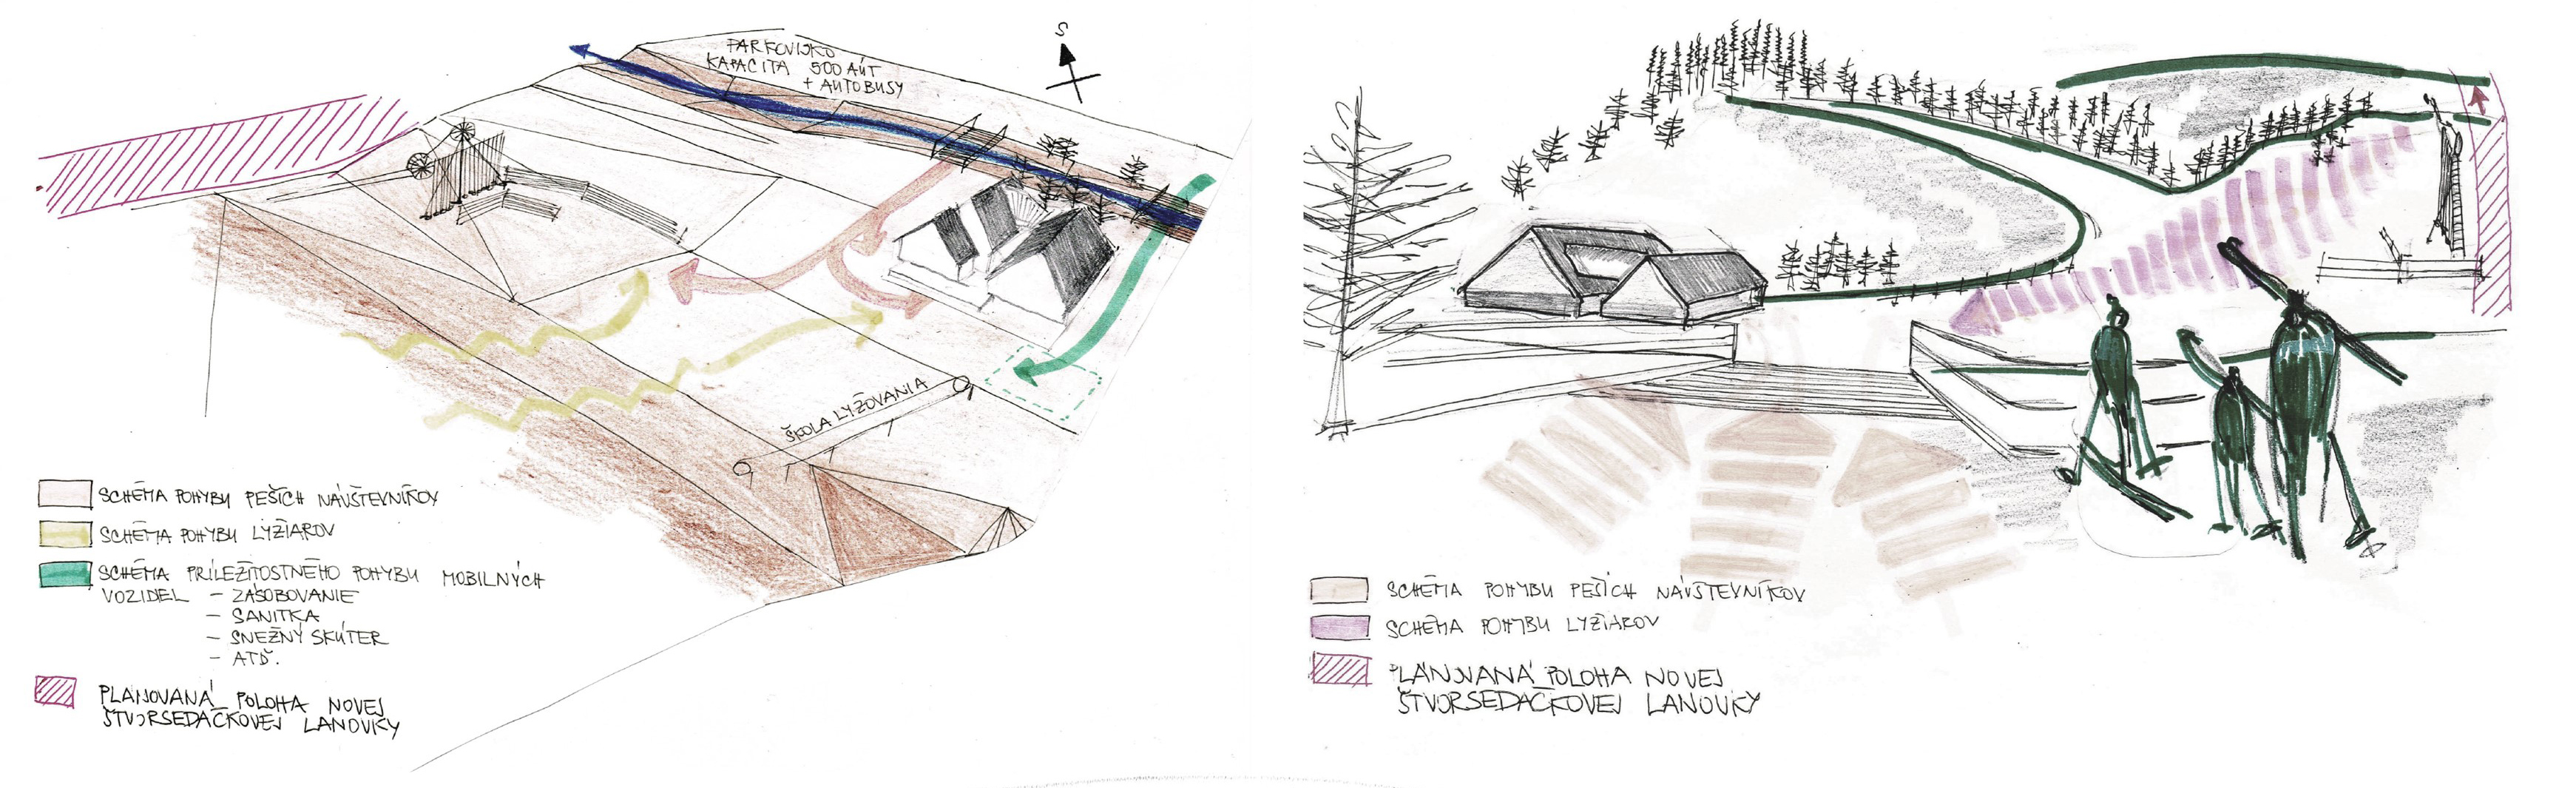 PARKOVISKO
KAPACITA 500 AÚT
+ AUTOBUSY
S
ŠKOLA LYŽOVANIA
SCHÉMA POHYBU PEŠÍCH NÁVŠTEVNÍKOV
SCHÉMA POHYBU LYŽIAROV
SCHÉMA PRÍLEŽITOSTNÉHO POHYBU MOBILNÝCH
VOZIDEL – ZÁSOBOVANIE
– SANITKA
– SNEŽNÝ SKÚTER
– ATĎ.
PLÁNOVANÁ POLOHA NOVEJ
ŠTVORSEDAČKOVEJ LANOVKY
SCHÉMA POHYBU PEŠÍCH NÁVŠTEVNÍKOV
SCHÉMA POHYBU LYŽIAROV
PLÁNOVANÁ POLOHA NOVEJ
ŠTVORSEDAČKOVEJ LANOVKY